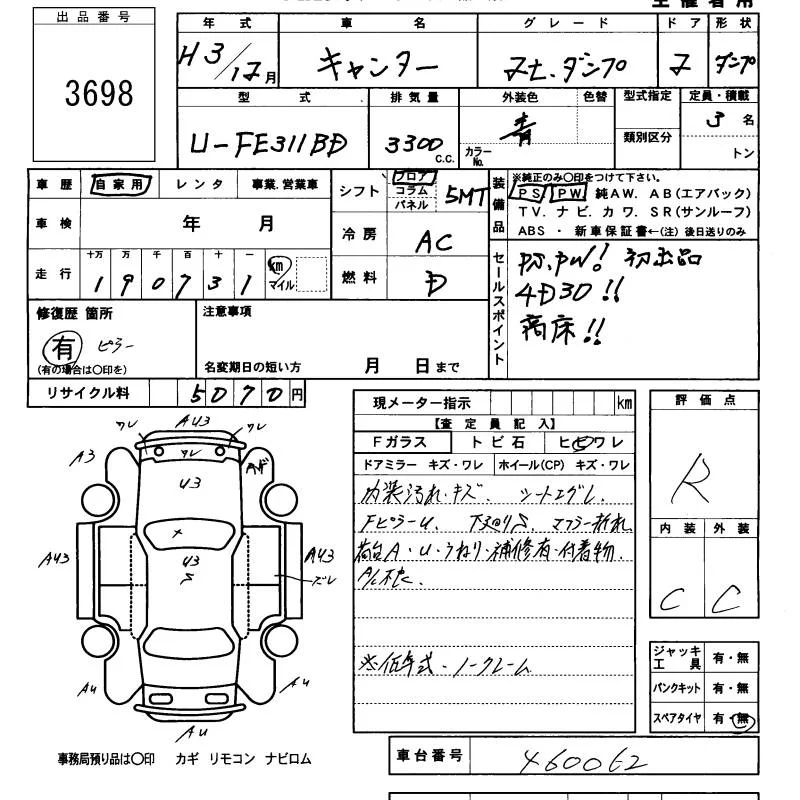 出品番号
3698
年式 車名 グレード ドア 形状
H3/12月 キャンター 2t.ダンプ 2 ダンプ
型式 排気量 外装色 色替 型式指定 定員・積載
U-FE311BD 3300 C.C. 青 カラーNo. 類別区分 3名
トン
車歴 自家用 レンタ 事業.営業車
シフト フロア コラム パネル 5MT
装備品 ※純正のみ〇印をつけて下さい。
PS PW 純AW. AB(エアバック)
TV. ナビ. カワ. SR(サンルーフ)
ABS ・ 新車保証書←(注) 後日送りのみ
車検 年 月
冷房 AC
走行 十万 万 千 百 十 一 km マイル
190731
燃料 D
セールスポイント
PS.PW! 初出品
4D30!!
高床!!
修復歴 箇所
有 ピラー
(有の場合は〇印を)
注意事項
名変期日の短い方 月 日まで
リサイクル料 5070円
現メーター指示 km
【査定員記入】
Fガラス トビ石 ヒビワレ
ドアミラー キズ・ワレ ホイール(CP) キズ・ワレ
内装汚れ・キズ. シート
FピラーU. 下廻りS. マフラー折れ
荷台A・U・うねり・補修有・付着物.
A/C不良.
※低年式・ノークレーム
評価点
R
内装 外装
C C
ジャッキ工具 有・無
パンクキット 有・無
スペアタイヤ 有・無
AU3
ワレ ワレ
A3 ワレ
U3
AU3 U3 S AU3
ズレ
AU AU
AU
事務局預り品は〇印 カギ リモコン ナビロム
車台番号 460062